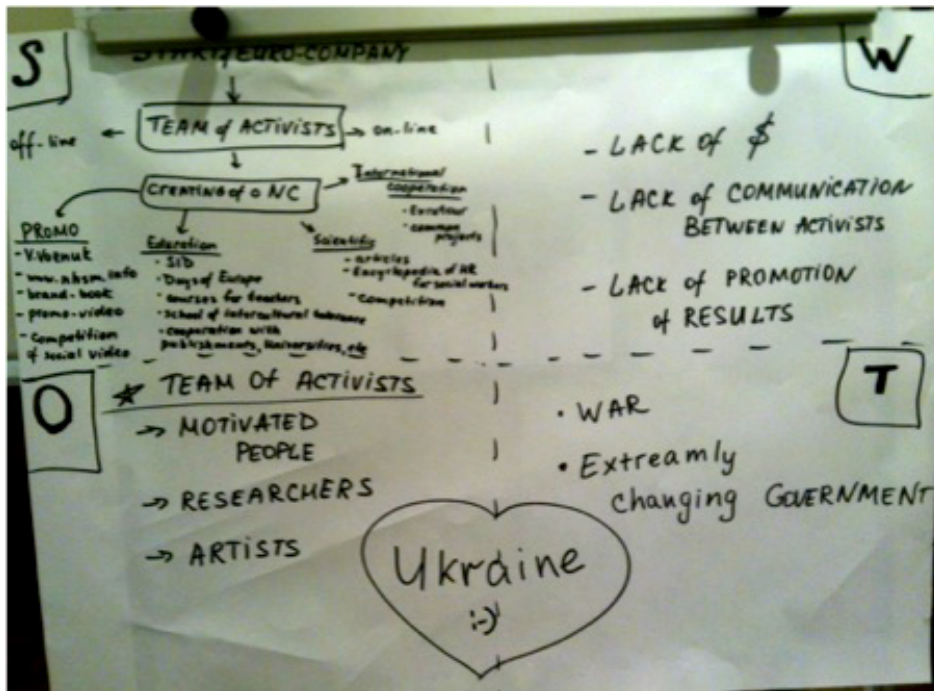 S
START of EURO-COMPANY
TEAM of ACTIVISTS
off-line
on-line
CREATING of a NC
International
cooperation
common
projects
PROMO
- www.nhsm.info
- brand-book
- promo-video
- Competition
of social video
Education
- SID
- Days of Europe
- courses for teachers
- School of intercultural tolerance
- cooperation with
publishments, Universities, etc
Scientific
- articles
- Encyclopedia of HR
for social workers
- Competition
W
- LACK of $
- LACK of COMMUNICATION
BETWEEN ACTIVISTS
- LACK of PROMOTION
of RESULTS
O
TEAM OF ACTIVISTS
→ MOTIVATED
PEOPLE
→ RESEARCHERS
→ ARTISTS
T
• WAR
• Extreamly
changing GOVERNMENT
Ukraine
:-)